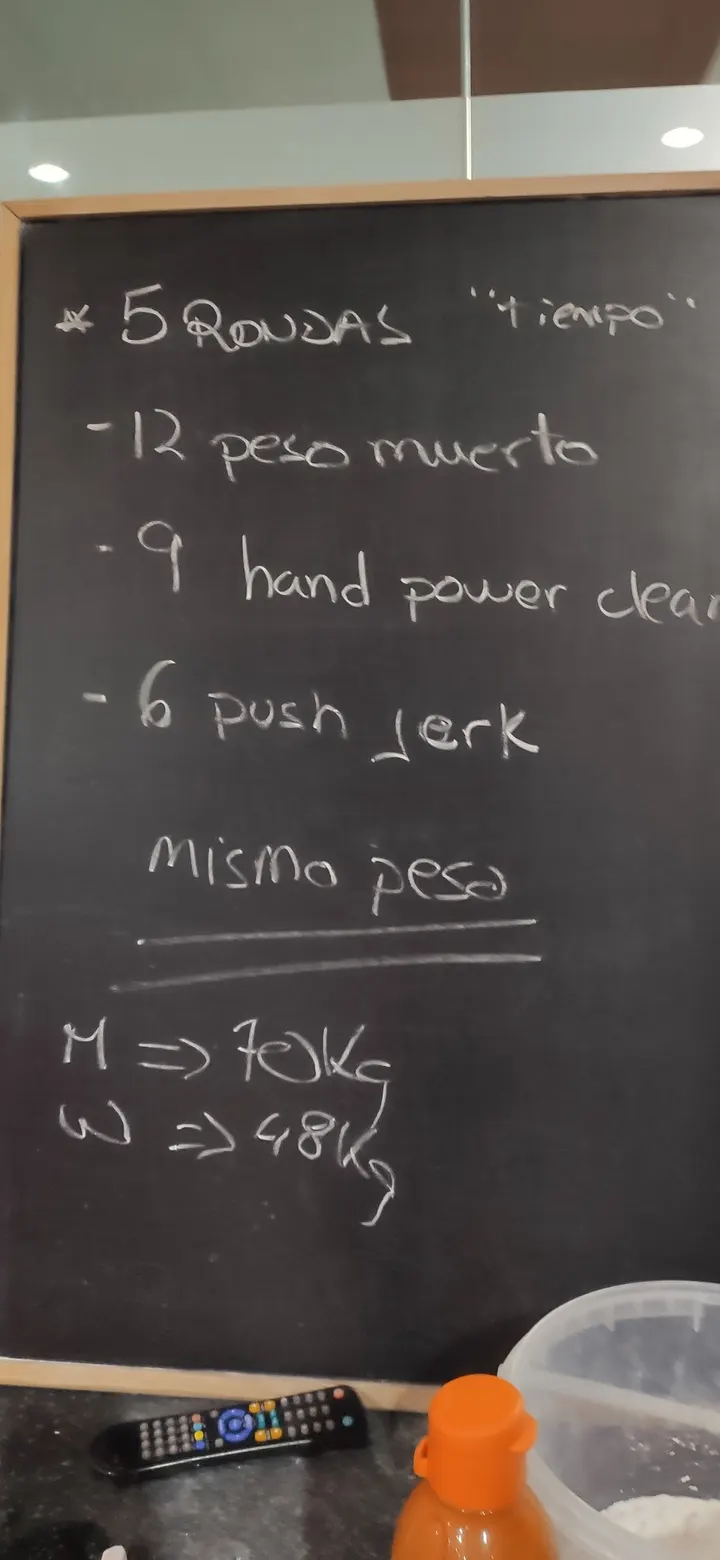 * 5 RONDAS "tiempo"
- 12 peso muerto
- 9 hand power clean
- 6 push jerk
mismo peso
M => 70Kg
W => 48Kg